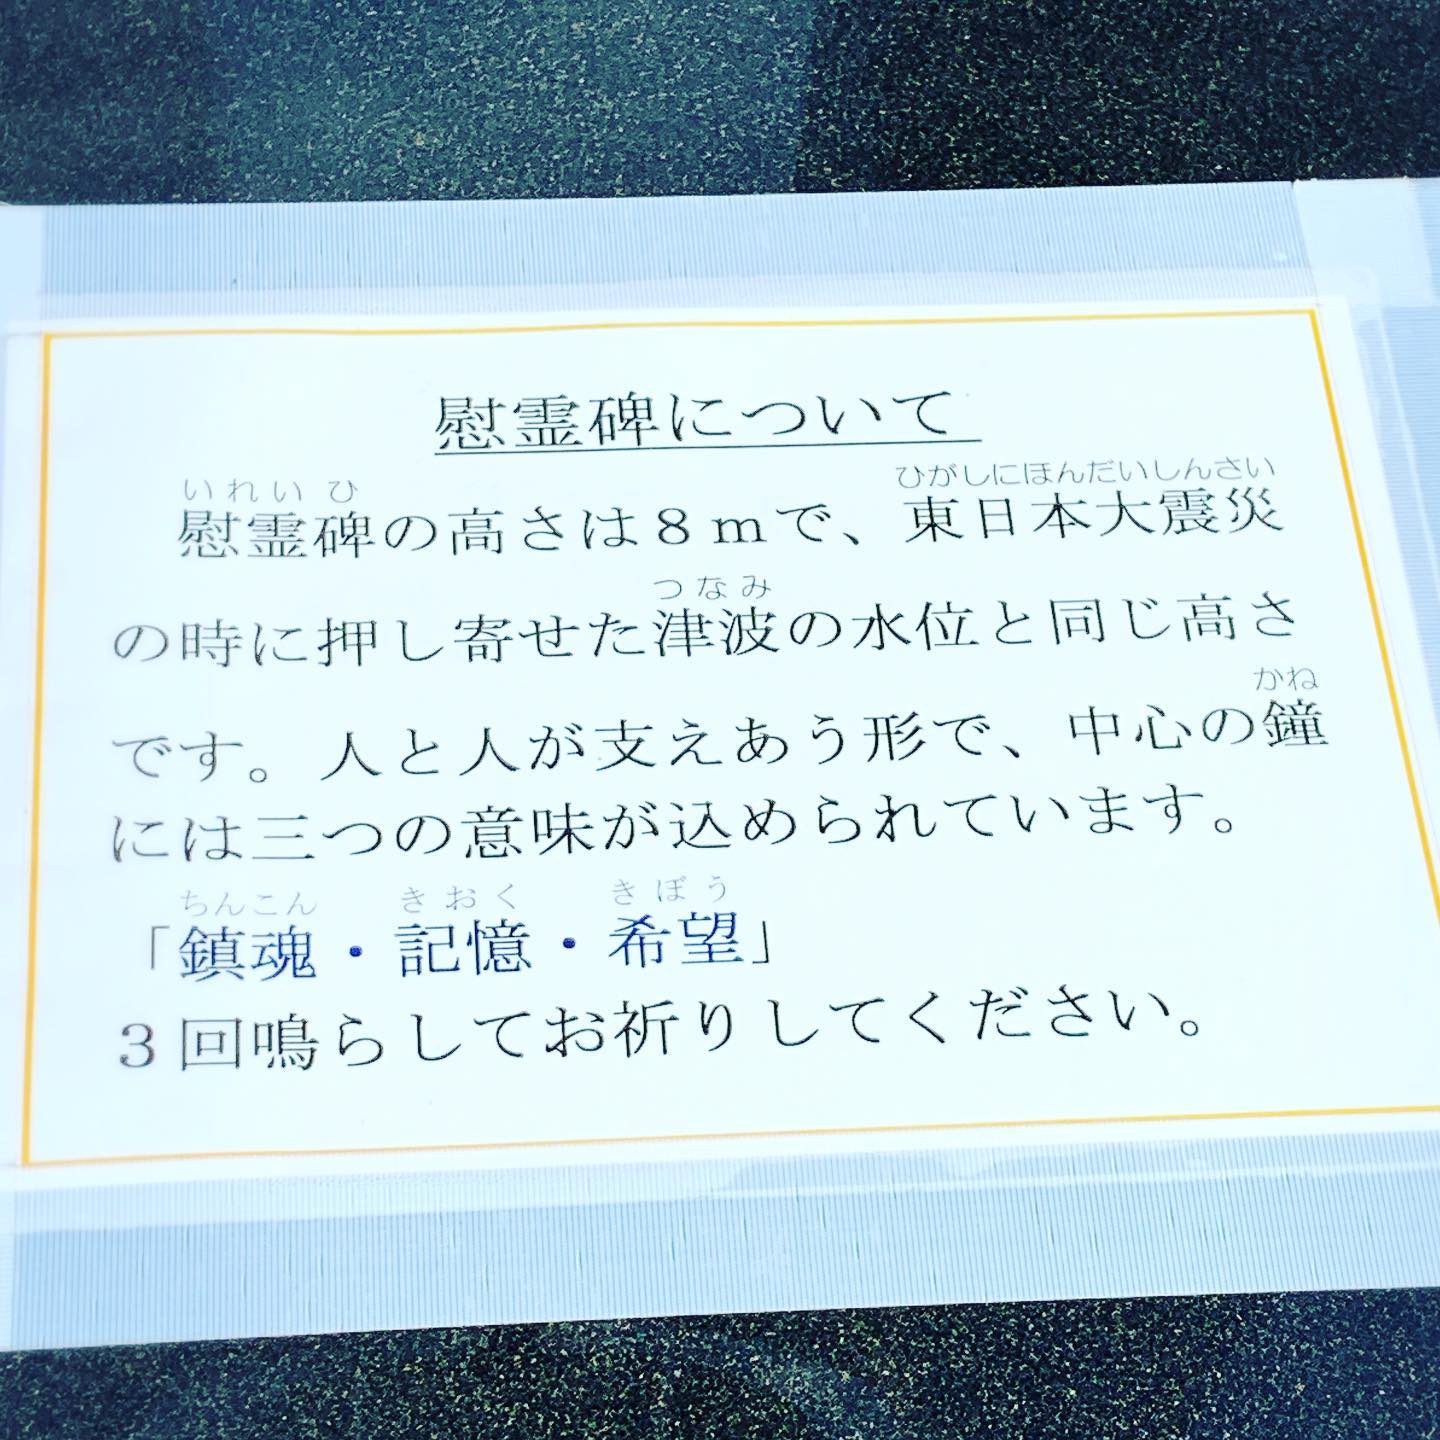 慰霊碑について
いれいひ ひがしにほんだいしんさい
慰霊碑の高さは８ｍで、東日本大震災
つなみ
の時に押し寄せた津波の水位と同じ高さ
かね
です。人と人が支えあう形で、中心の鐘
には三つの意味が込められています。
ちんこん きおく きぼう
「鎮魂・記憶・希望」
３回鳴らしてお祈りしてください。